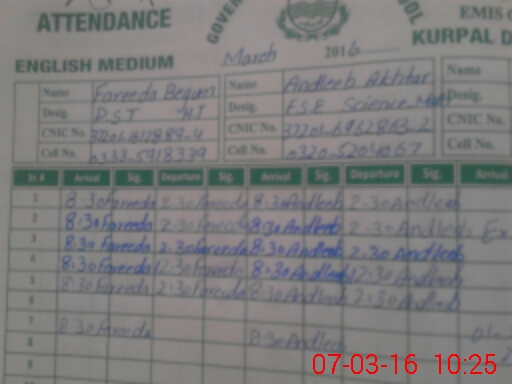 ATTENDANCE
EMIS
KURPAL
ENGLISH MEDIUM
March 2016
Name Fareeda Begum
Desig. PST HT
CNIC No.
Cell No. 0333-5918339
Name Andleeb Akhtar
Desig. ESE Science
CNIC No.
Cell No. 0320-5204067
Name
Desig.
CNIC No.
Cell No.
Sr.# Arrival Sig. Departure Sig. Arrival Sig. Departure Sig. Arrival
1 8:30 Fareeda 2:30 Fareeda 8:30 Andleeb 2:30 Andleeb
2 8:30 Fareeda 2:30 Fareeda 8:30 Andleeb 2:30 Andleeb
3 8:30 Fareeda 2:30 Fareeda 8:30 Andleeb 2:30 Andleeb
4 8:30 Fareeda 2:30 Fareeda 8:30 Andleeb 2:30 Andleeb
5 8:30 Fareeda 2:30 Fareeda 8:30 Andleeb 2:30 Andleeb
6
7 8:30 Fareeda 8:30 Andleeb
8
9
07-03-16 10:25